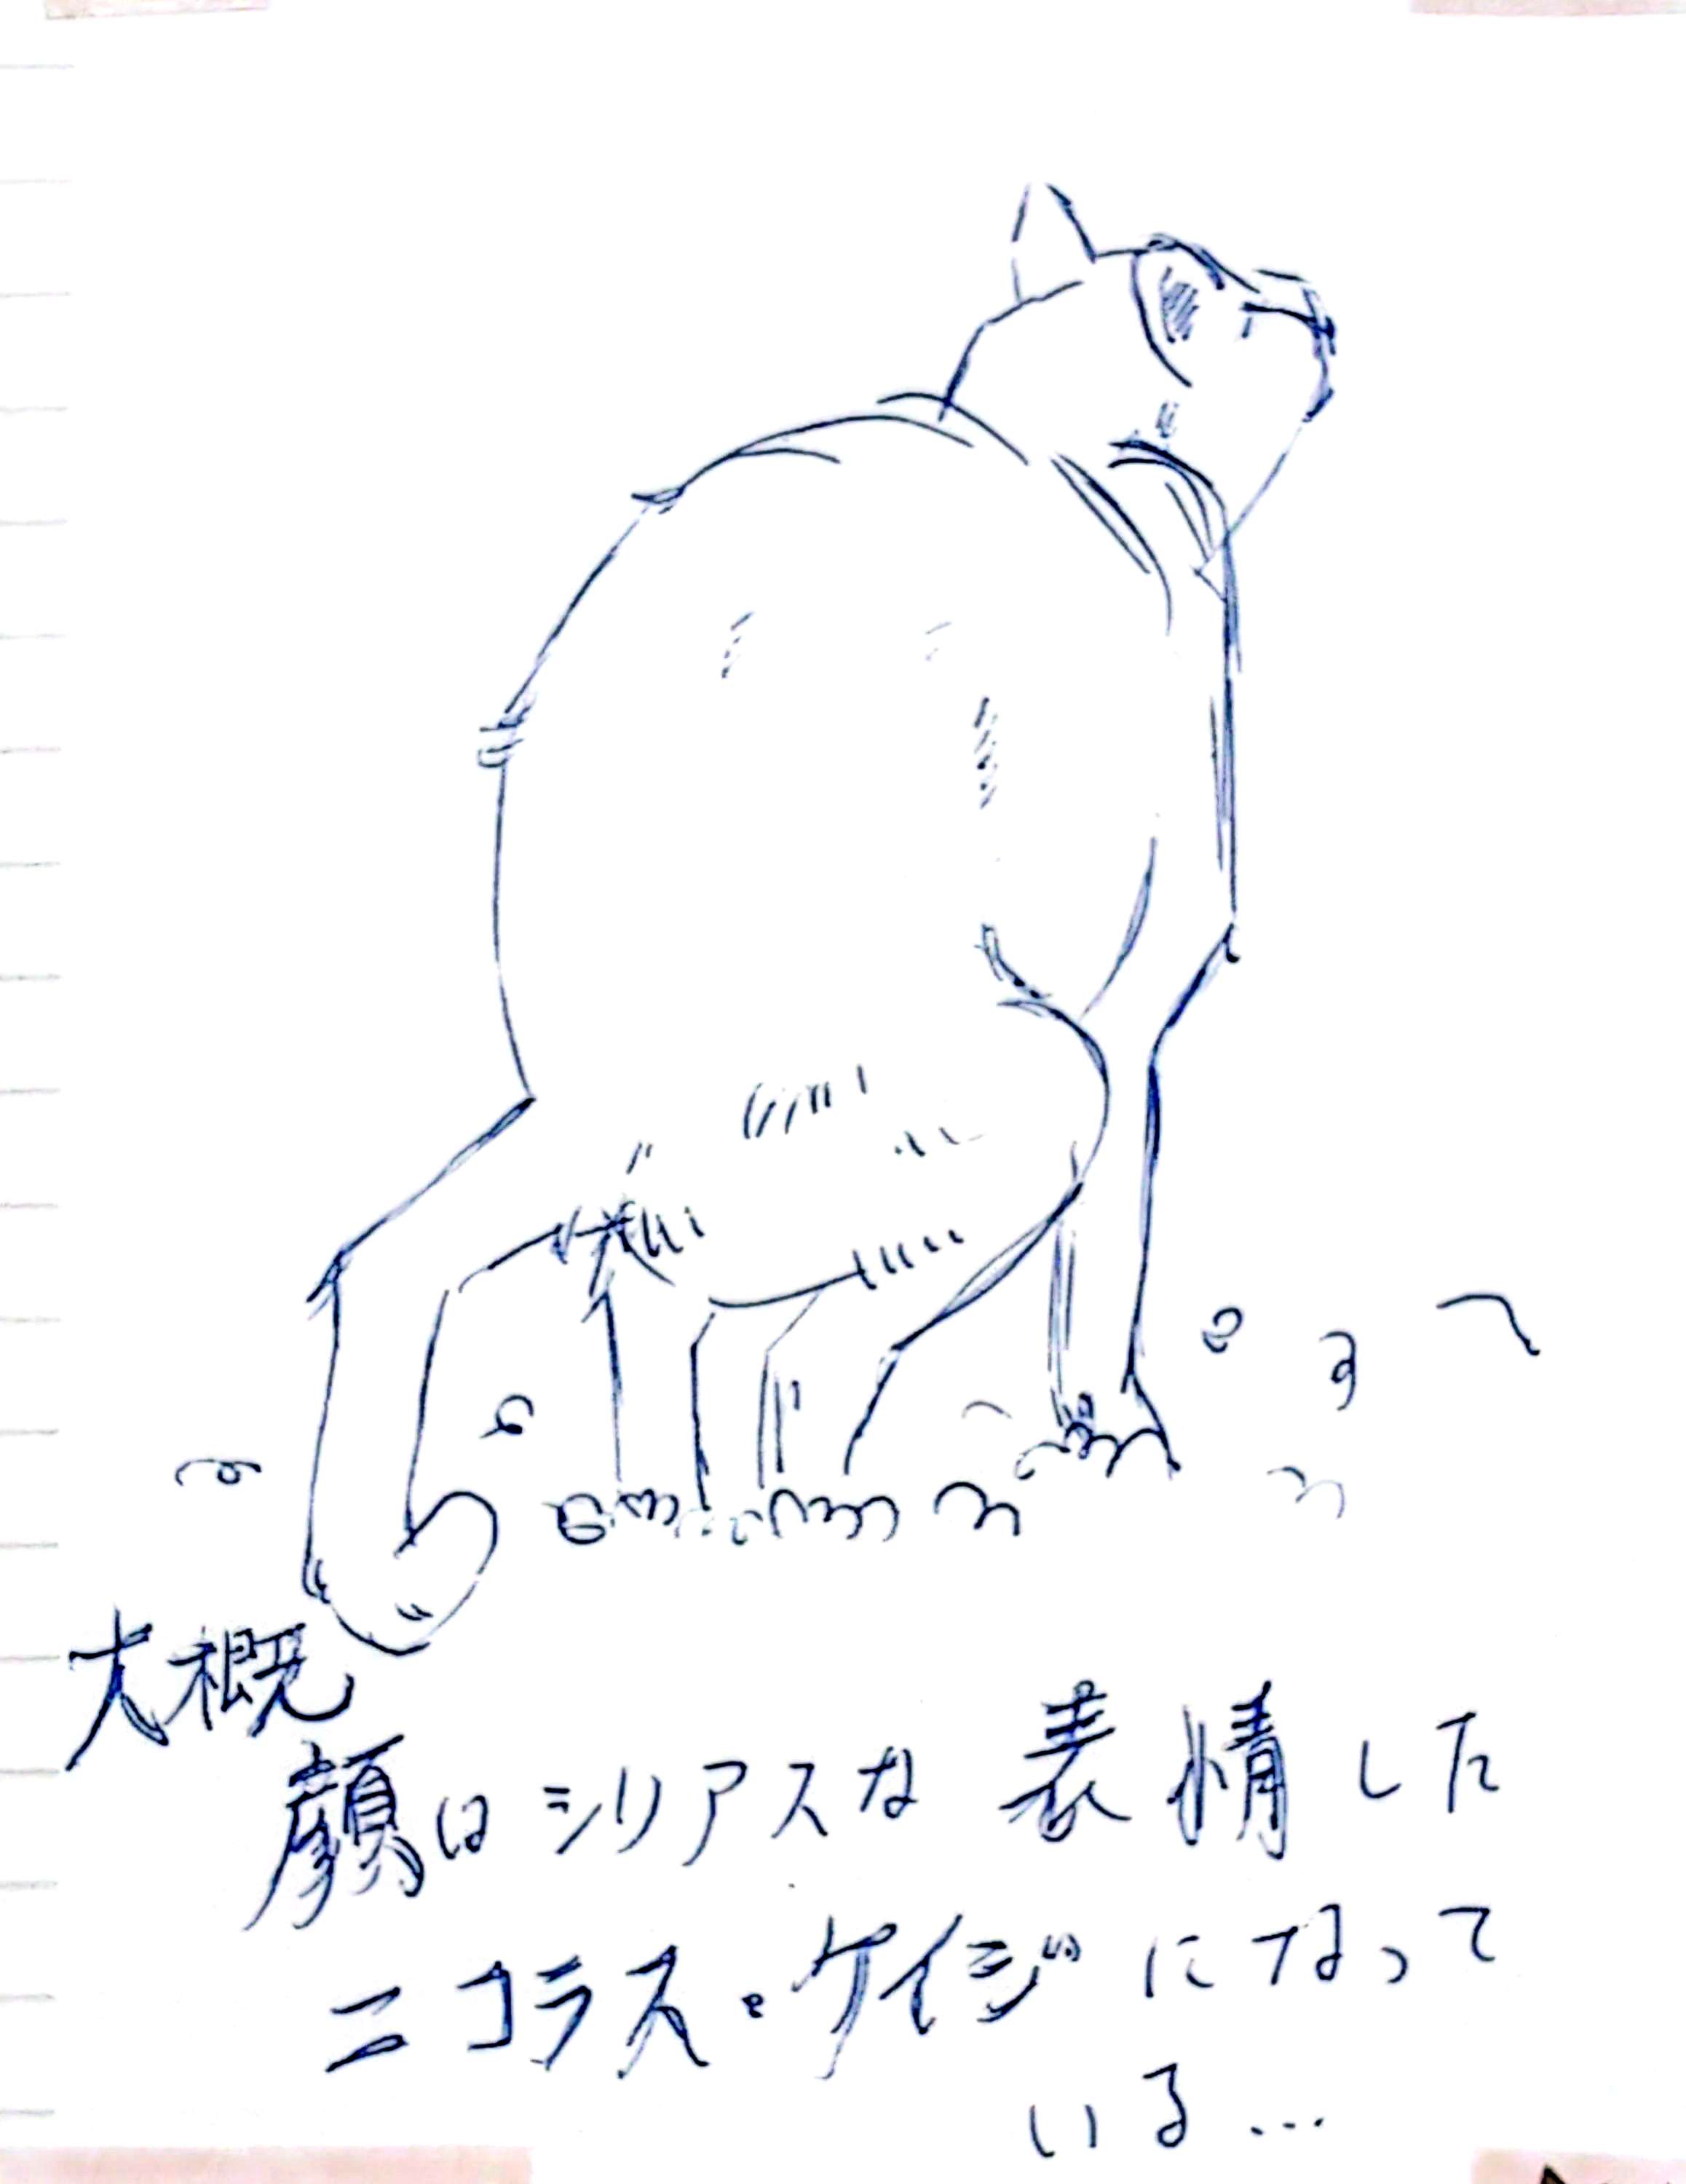 大概
顔はシリアスな表情した
ニコラス・ケイジになって
いる…